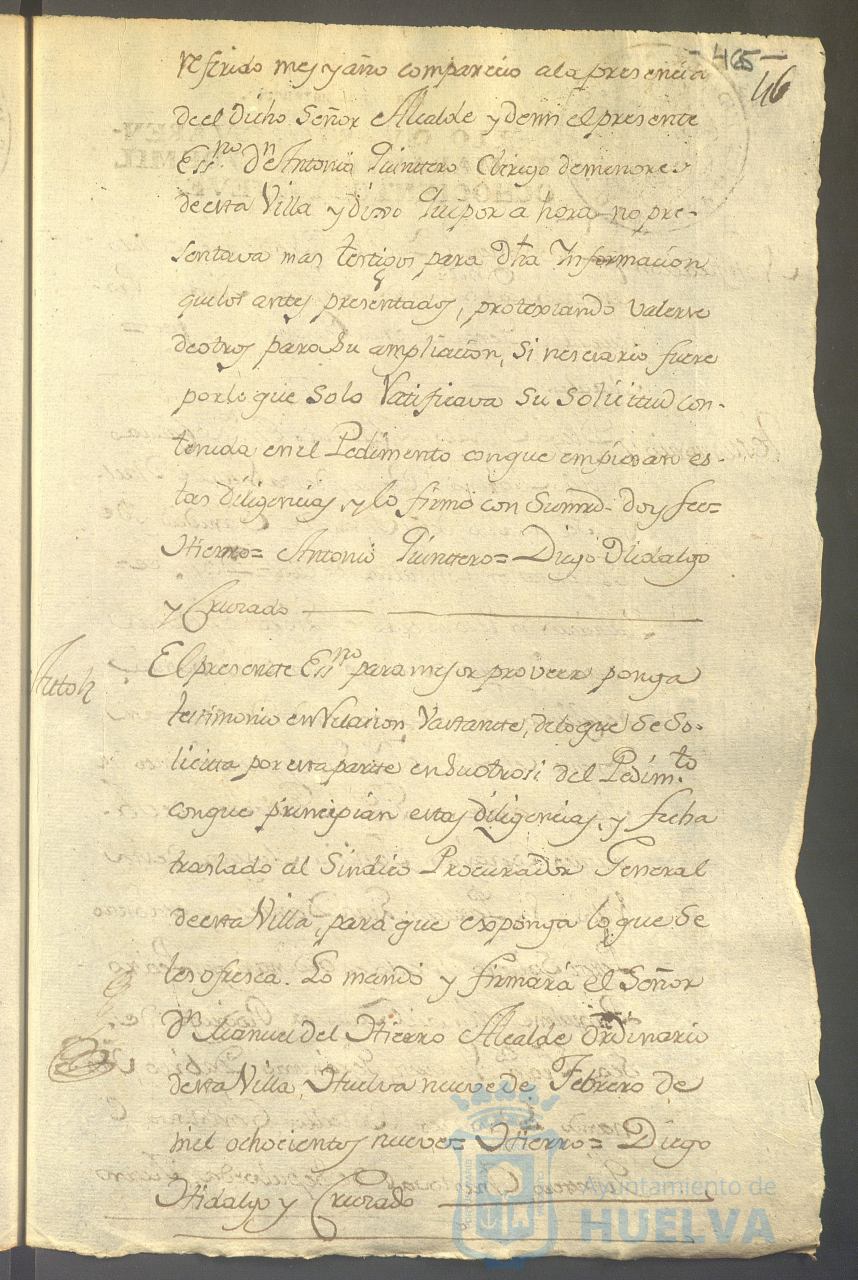 - 465 -
46
referido mes y año comparecio a la presencia
de el Dicho Señor Alcalde y de mi el presente
Essno. Dn Antonio Quinttero Clerigo de menores
de esta Villa y dixo Que por a hora no pre-
sentava mas testigos para dha Informacion
que los antes presentados, protextando valerse
de otros para su ampliacion, si nesesario fuere
por lo que solo Ratificava su solicitud con-
tenida en el Pedimento con que empiesan es-
tas diligencias, y lo firmo con Sumrd. doy fee=
Hierro= Antonio Quinttero= Diego Hidalgo
y Cruzado
Autto
El presente Essno para mejor proveer ponga
testimonio en Relacion Vastante, de lo que se so-
licita por esta parte en su otrosi del Pedimto
con que principian estas diligencias, y fecha
traslado al Sindico Procurador General
de esta Villa, para que exponga lo que se
les ofresca. Lo mandó y firmará el Señor
Dn Manuel del Hierro Alcalde Ordinario
de esta Villa, Huelva nueve de Febrero de
mil ochocientos nueve= Hierro= Diego
Hidalgo y Cruzado
Ayuntamiento de
HUELVA